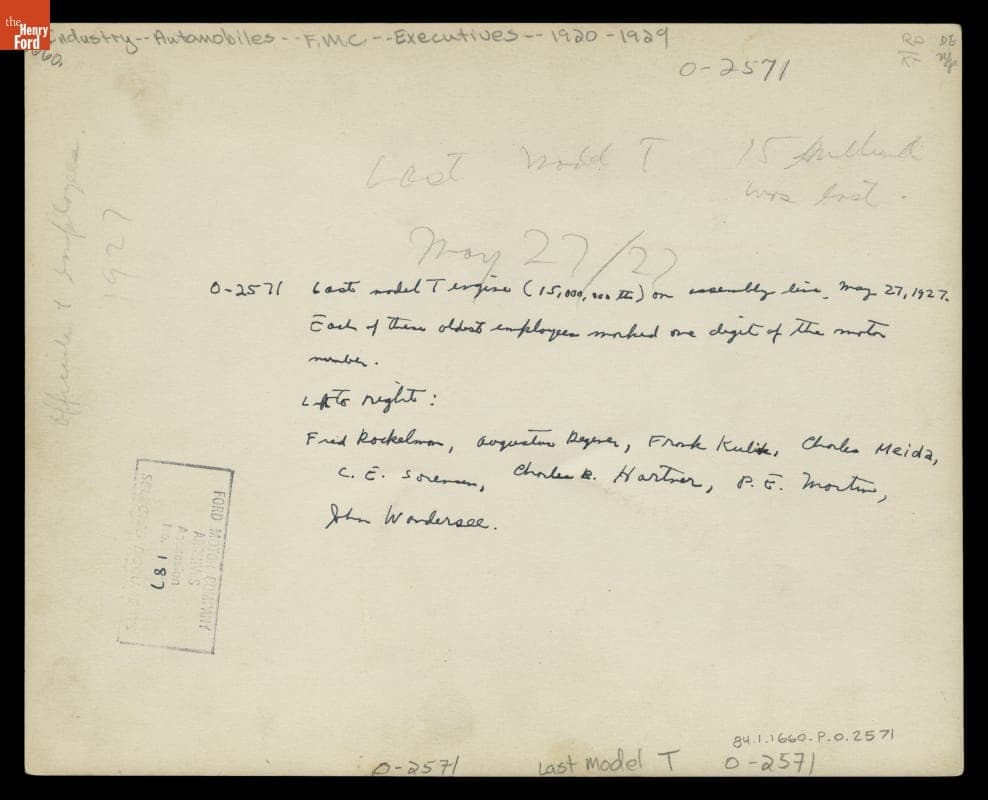 the
Henry
Ford
Industry--Automobiles--F.M.C.--Executives--1920-1929
1660.
O-2571
Last Model T 15 million
was last.
May 27/27
Officials & employees
1927
O-2571 Last model T engine (15,000,000th) on assembly line, May 27, 1927.
Each of these oldest employees marked one digit of the motor
number.
L to right:
Fred Rockelman, Augustus Degener, Frank Kulik, Charles Meida,
C. E. Sorensen, Charles B. Hartner, P. E. Martin,
John Wandersee.
FORD MOTOR COMPANY
ARCHIVES
Accession
No. 187
SELECTED DOCUMENTS
84.1.1660.P.O.2571
O-2571 Last Model T O-2571